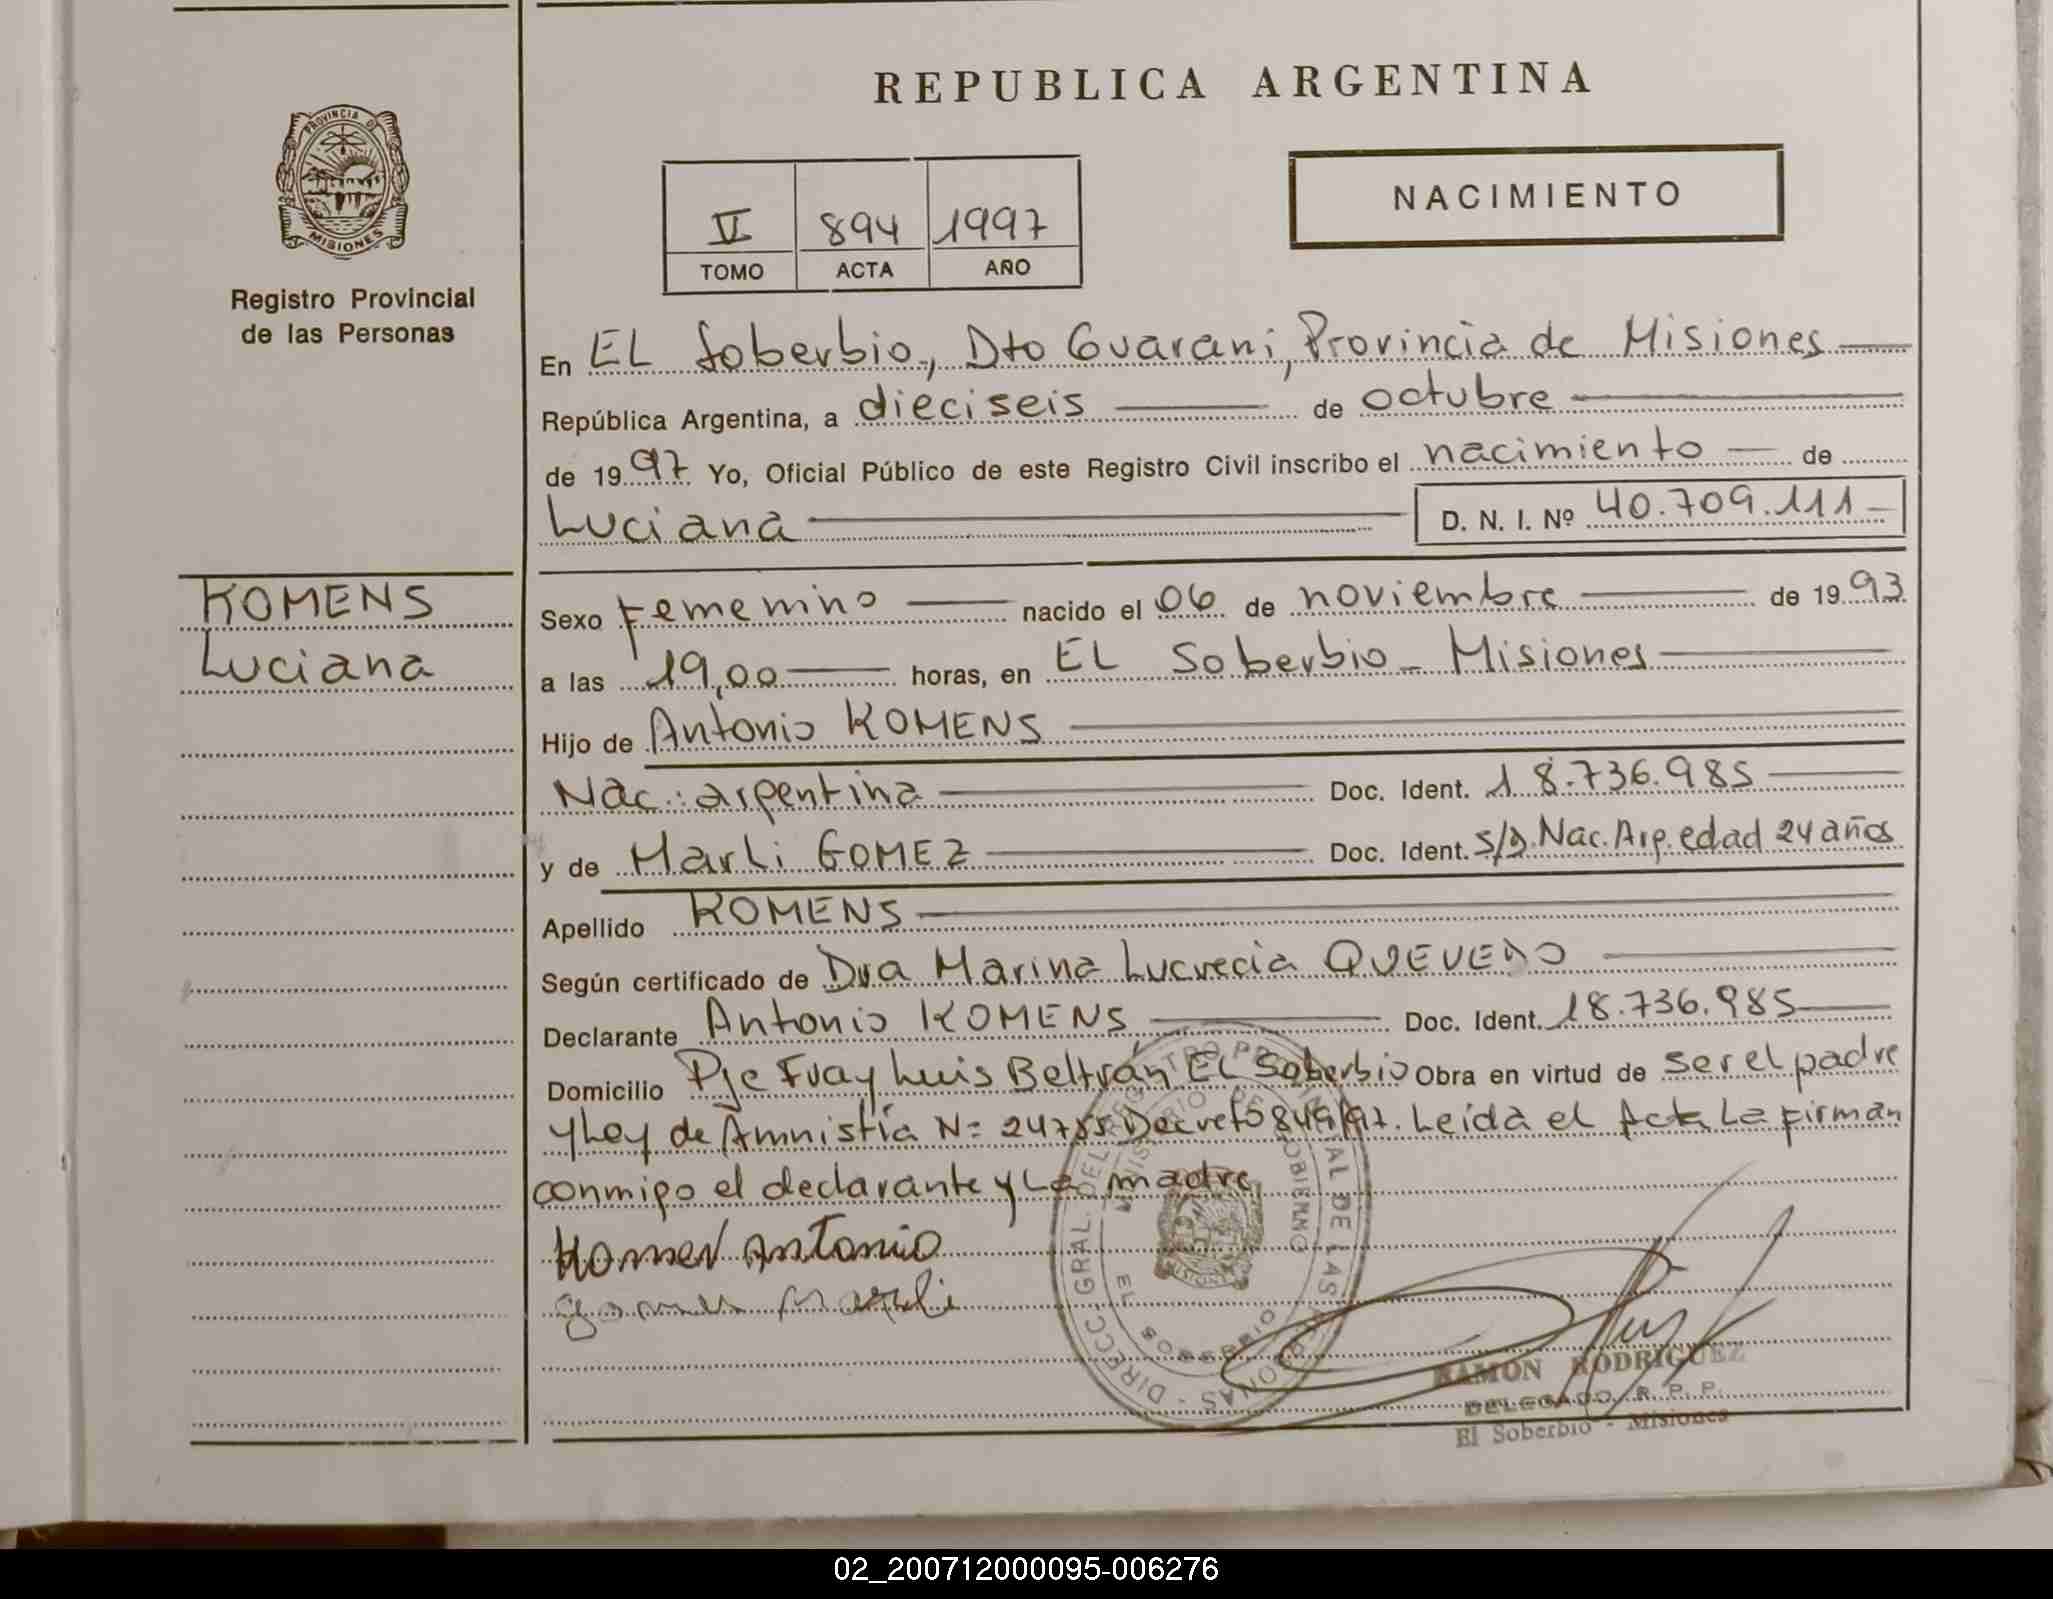 REPUBLICA ARGENTINA
PROVINCIA DE
MISIONES
Registro Provincial
de las Personas
VI 894 1997
TOMO ACTA AÑO
NACIMIENTO
En EL Soberbio, Dto Guarani, Provincia de Misiones
República Argentina, a dieciseis de octubre
de 1997 Yo, Oficial Público de este Registro Civil inscribo el nacimiento de
Luciana D. N. I. Nº 40.709.111
KOMENS
Luciana
Sexo Femenino nacido el 06 de noviembre de 1993
a las 19,00 horas, en EL Soberbio - Misiones
Hijo de Antonio KOMENS
Nac.: argentina Doc. Ident. 18.736.985
y de Marli GOMEZ Doc. Ident. S/D. Nac. Arg. edad 24 años
Apellido KOMENS
Según certificado de Dra Marina Lucrecia QUEVEDO
Declarante Antonio KOMENS Doc. Ident. 18.736.985
Domicilio Pje Fray Luis Beltrán EL Soberbio Obra en virtud de ser el padre
y Ley de Amnistía Nº 24755 Decreto 849/97. Leída el Acta La firman
conmigo el declarante y La madre
Komen Antonio
Marli
DIRECC. GRAL. DEL REGISTRO PROVINCIAL DE LAS PERSONAS
MINISTERIO DE GOBIERNO
EL SOBERBIO
MISIONES
RAMON RODRIGUEZ
DELEGADO R. P. P.
El Soberbio - Misiones
02_200712000095-006276